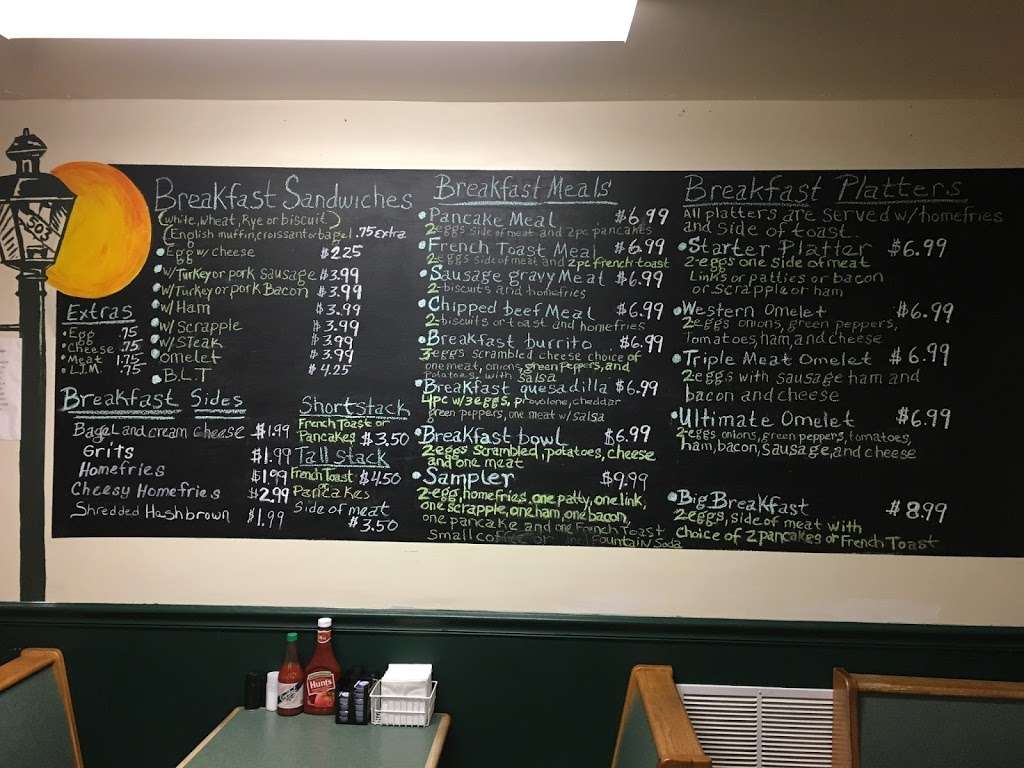 Breakfast Sandwiches
(white, wheat, Rye or biscuit)
(English muffin, croissant or bagel .75 Extra
Egg w/ cheese $2.25
w/ Turkey or pork Sausage $3.99
w/ Turkey or pork Bacon $3.99
w/ Ham $3.99
w/ Scrapple $3.99
w/ Steak $3.99
omelet $3.99
B.L.T $4.25
Extras
Egg .75
Cheese .75
Meat 1.75
L.T.M .75
Breakfast Sides
Bagel and cream cheese $1.99
Grits $1.99
Homefries $1.99
Cheesy Homefries $2.99
Shredded Hashbrown $1.99
Short stack
French Toast or
Pancakes $3.50
Tall stack
French Toast or $4.50
Pancakes
Side of meat
$3.50
Breakfast Meals
Pancake Meal $6.99
2 eggs side of meat and 2pc pancakes
French Toast Meal $6.99
2 eggs side of meat and 2pc french toast
Sausage gravy Meal $6.99
2-biscuits and homefries
Chipped beef Meal $6.99
2-biscuits or toast and homefries
Breakfast burrito $6.99
3 eggs scrambled cheese choice of
one meat, onions, green peppers, and
Potatoes with Salsa
Breakfast quesadilla $6.99
4pc w/ 3 eggs, provolone, cheddar
green peppers, one meat w/ salsa
Breakfast bowl $6.99
2 eggs scrambled, potatoes, cheese
and one meat
Sampler $9.99
2 egg, homefries, one patty, one link,
one scrapple, one ham, one bacon,
one pancake and one French Toast
Small coffee or Fountain Soda
Breakfast Platters
All platters are served w/ homefries
and side of toast.
Starter Platter $6.99
2-eggs one side of meat
Links or patties or bacon
or Scrapple or ham
Western Omelet $6.99
2 eggs onions, green peppers,
Tomatoes, ham, and cheese
Triple Meat Omelet $6.99
2 eggs with sausage ham and
bacon and cheese
Ultimate Omelet $6.99
eggs onions, green peppers, tomatoes,
ham, bacon, sausage, and cheese
Big Breakfast $8.99
2 eggs, side of meat with
choice of 2 pancakes or French Toast
Hunt's